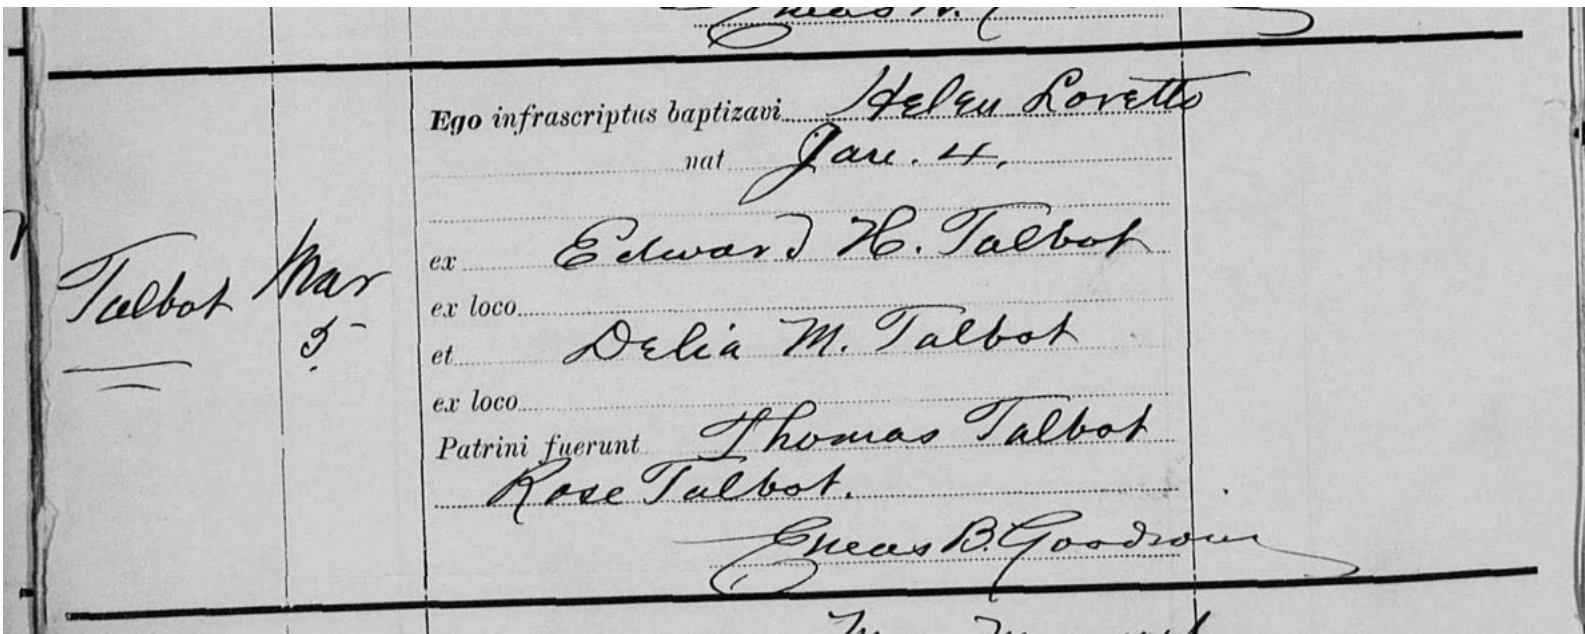 Eneas
Ego infrascriptus baptizavi Helen Loretto
nat Jan. 4.
ex Edward H. Talbot
Talbot Mar
5
ex loco
et Delia M. Talbot
ex loco
Patrini fuerunt Thomas Talbot
Rose Talbot.
Eneas B. Goodwin